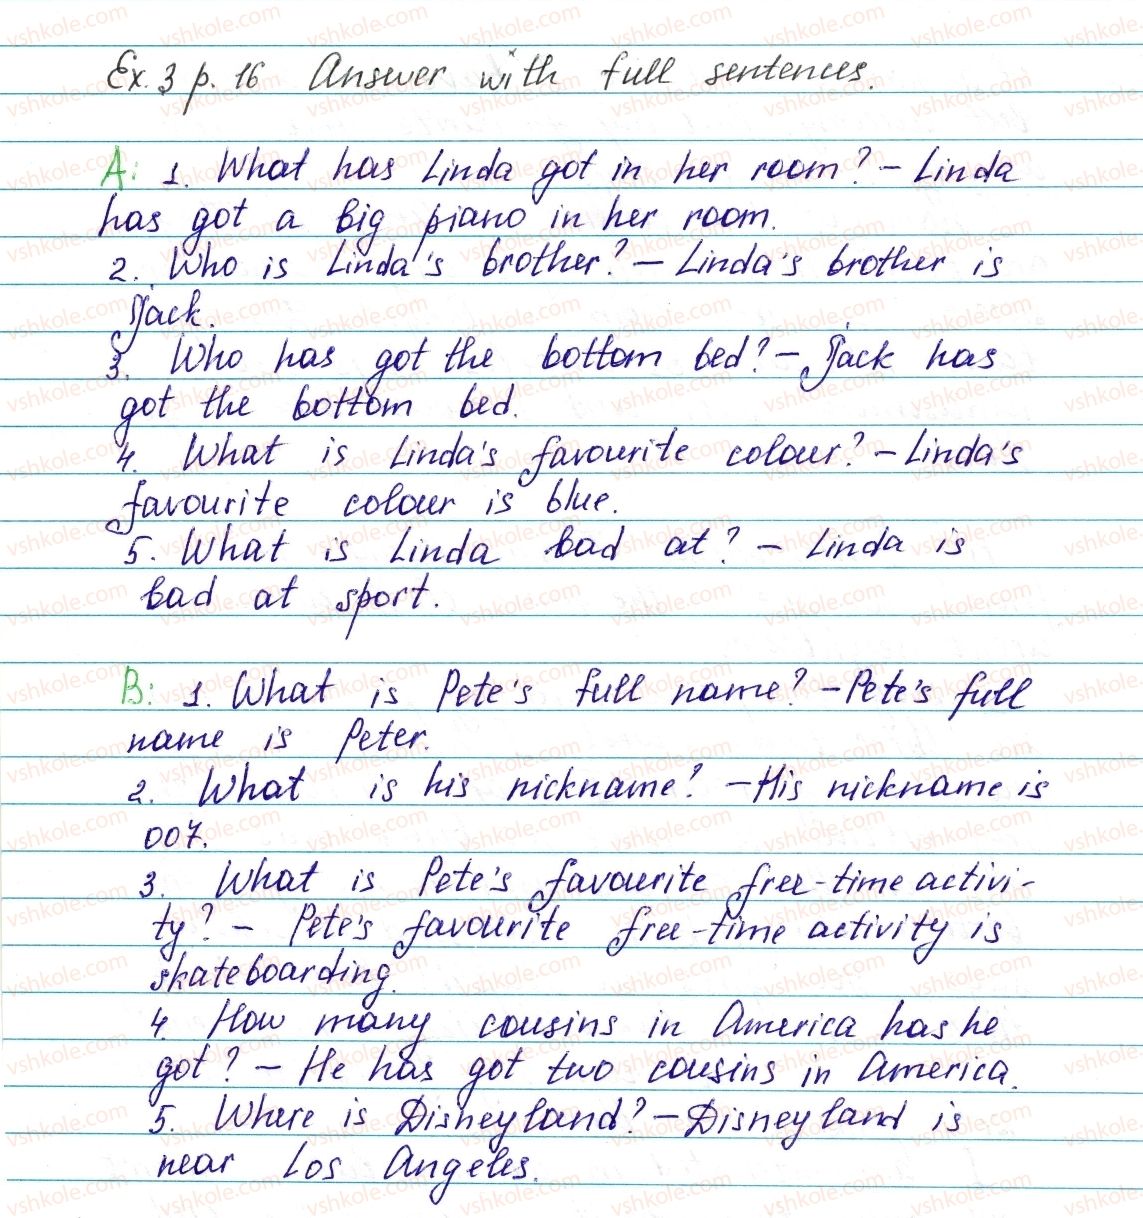 Ex. 3 p. 16 Answer with full sentences.
A: 1. What has Linda got in her room? – Linda
has got a big piano in her room.
2. Who is Linda's brother? – Linda's brother is
Jack.
3. Who has got the bottom bed? – Jack has
got the bottom bed.
4. What is Linda's favourite colour? – Linda's
favourite colour is blue.
5. What is Linda bad at? – Linda is
bad at sport.
B: 1. What is Pete's full name? – Pete's full
name is Peter.
2. What is his nickname? – His nickname is
007.
3. What is Pete's favourite free-time activi-
ty? – Pete's favourite free-time activity is
skateboarding.
4. How many cousins in America has he
got? – He has got two cousins in America.
5. Where is Disneyland? – Disneyland is
near Los Angeles.